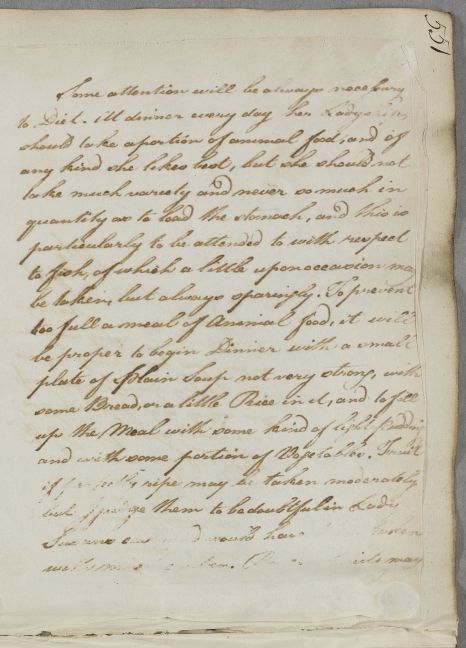 551
Some attention will be always necessary
to Diet. At dinner every day her Ladyship,
should take a portion of animal food, and of
any kind she likes best, but she should not
take much variety and never so much in
quantity as to load the stomach, and this is
particularly to be attended to with respect
to fish, of which a little upon occasion may
be taken, but always sparingly. To prevent
too full a meal of Animal food, it will
be proper to begin Dinner with a small
plate of plain Soup not very strong, with
some Bread, or a little Rice in it, and to fill
up the Meal with some kind of light Pudding
and with some portion of Vegetables. Fruit
if perfectly ripe may be taken moderately
but I judge them to be doubtful in Lady
would have taken
may